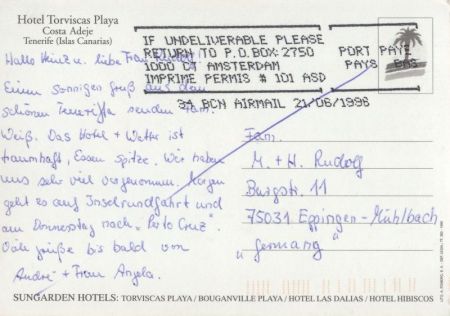 Hotel Torviscas Playa
Costa Adeje
Tenerife (Islas Canarias)
IF UNDELIVERABLE PLEASE
RETURN TO P.O.BOX:2750
1000 CT AMSTERDAM
IMPRIME PERMIS # 101 ASD
PORT PAYE
PAYS BAS
34 BCN AIRMAIL 21/06/1996
Hallo Heinz u. liebe Frau
Einen sonnigen Gruß aus dem
schönen Teneriffa senden Fam.
Weiß. Das Hotel + Wetter ist
traumhaft, Essen spitze. Wir haben
uns sehr viel vorgenommen. Morgen
geht es auf Inselrundfahrt und
am Donnerstag nach „Porto Cruz".
Viele Grüße bis bald von
André + Frau Angela.
Fam.
M. + H. Rudolf
Burgstr. 11
75031 Eppingen-Mühlbach
„Germany"
SUNGARDEN HOTELS: TORVISCAS PLAYA / BOUGANVILLE PLAYA / HOTEL LAS DALIAS / HOTEL HIBISCOS